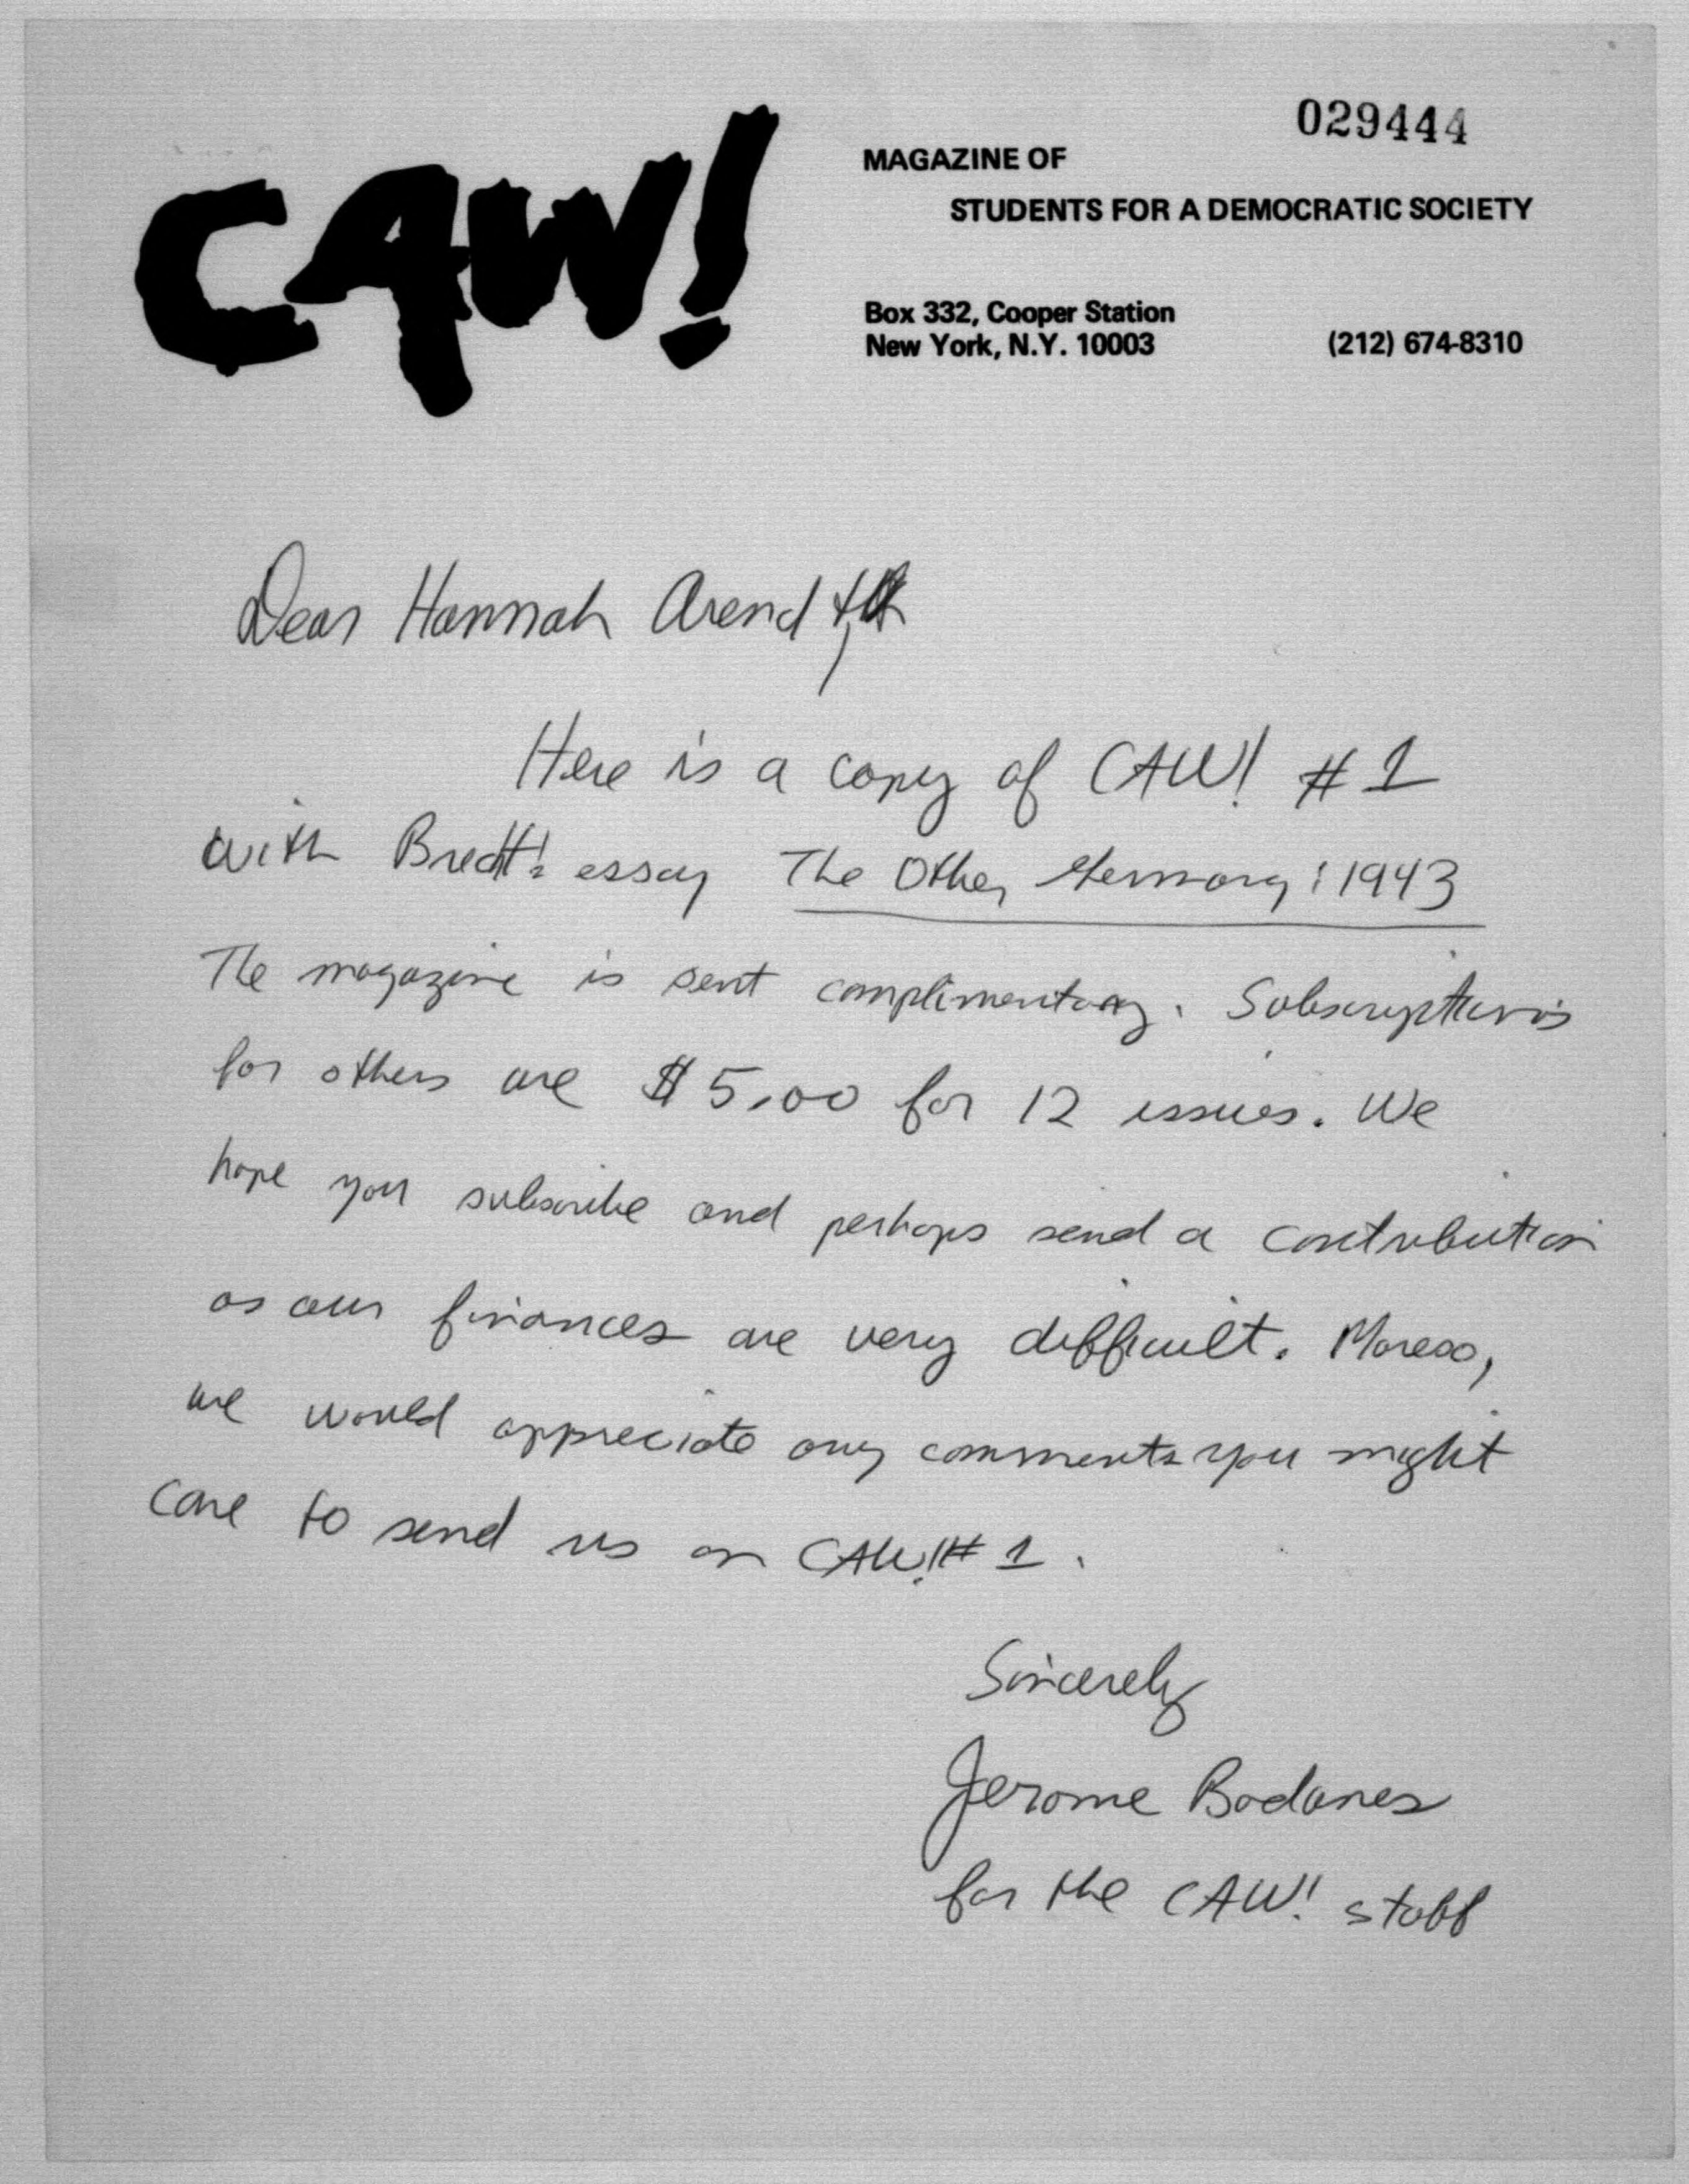 CAW!
029444
MAGAZINE OF
STUDENTS FOR A DEMOCRATIC SOCIETY
Box 332, Cooper Station
New York, N.Y. 10003 (212) 674-8310
Dear Hannah Arendt,
Here is a copy of CAW! #1
with Brecht's essay The Other Germany: 1943
The magazine is sent complimentary. Subscriptions
for others are $5.00 for 12 issues. We
hope you subscribe and perhaps send a contribution
as our finances are very difficult. Moreso,
we would appreciate any comments you might
care to send us on CAW! #1.
Sincerely
Jerome Bodanes
for the CAW! staff